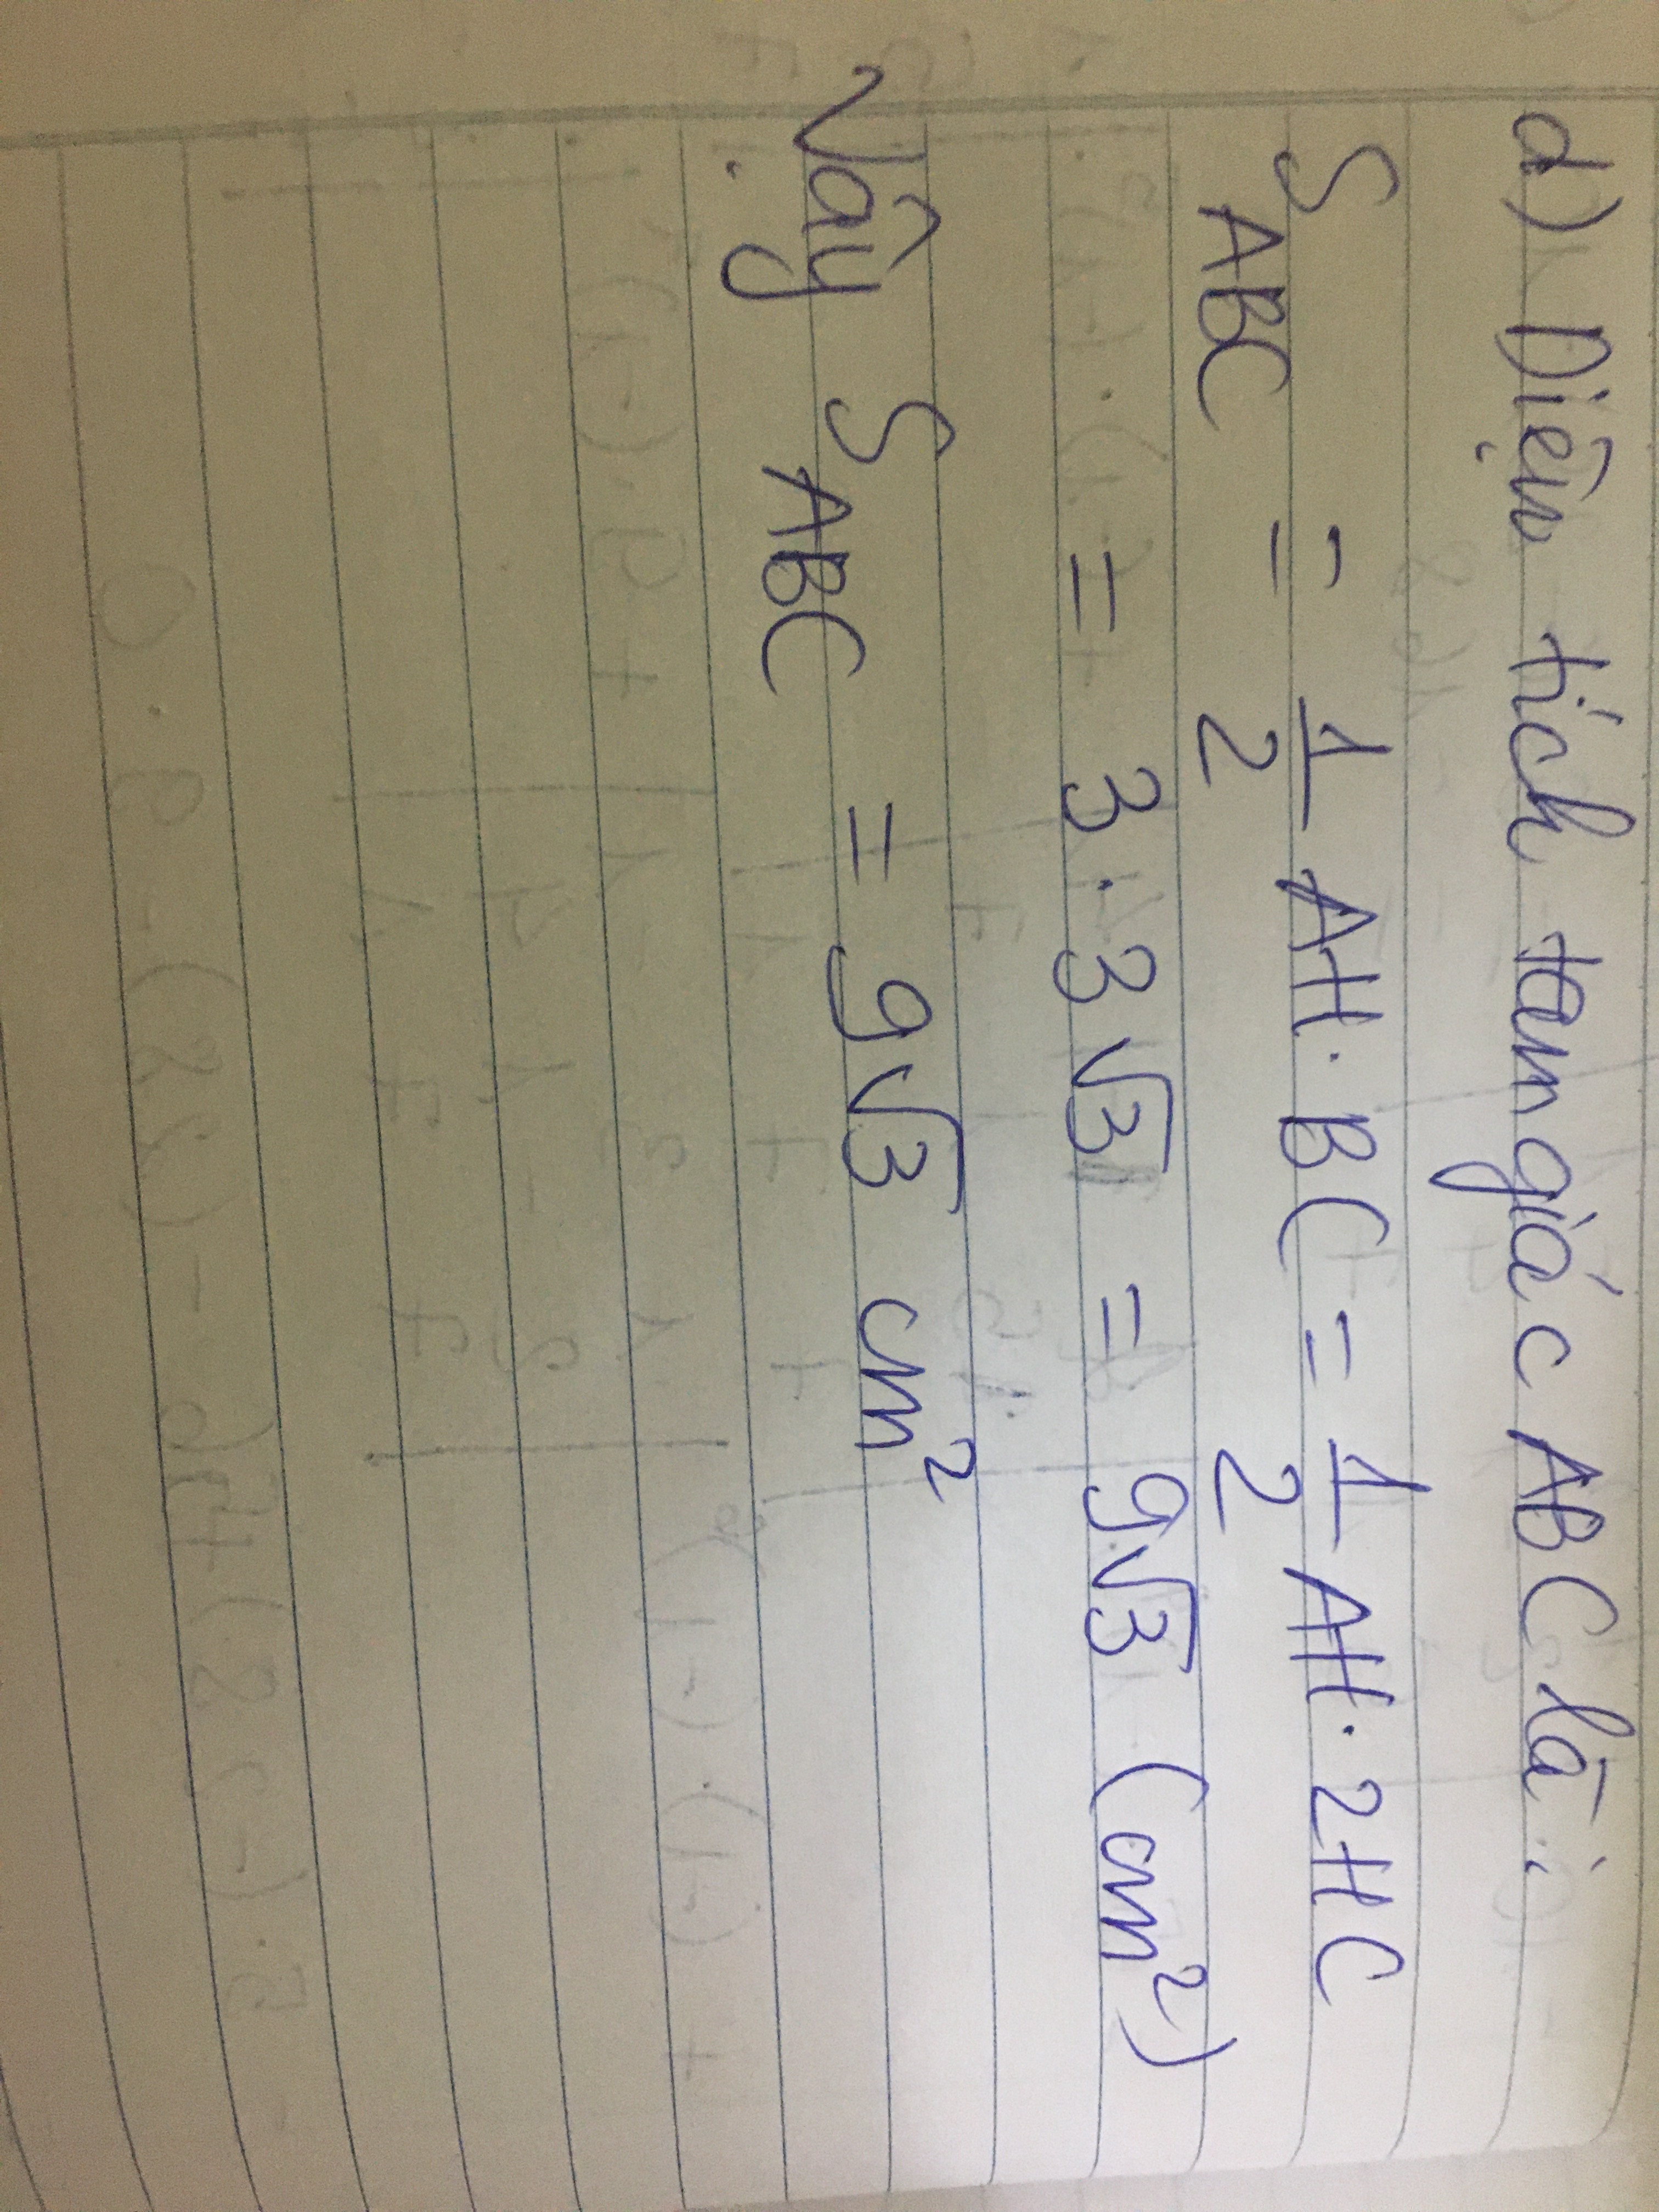 d) Diện tích tam giác ABC là:
S ABC = 1/2 AH . BC = 1/2 AH . 2HC
= 3 . 3√3 = 9√3 (cm²)
Vậy S ABC = 9√3 cm²